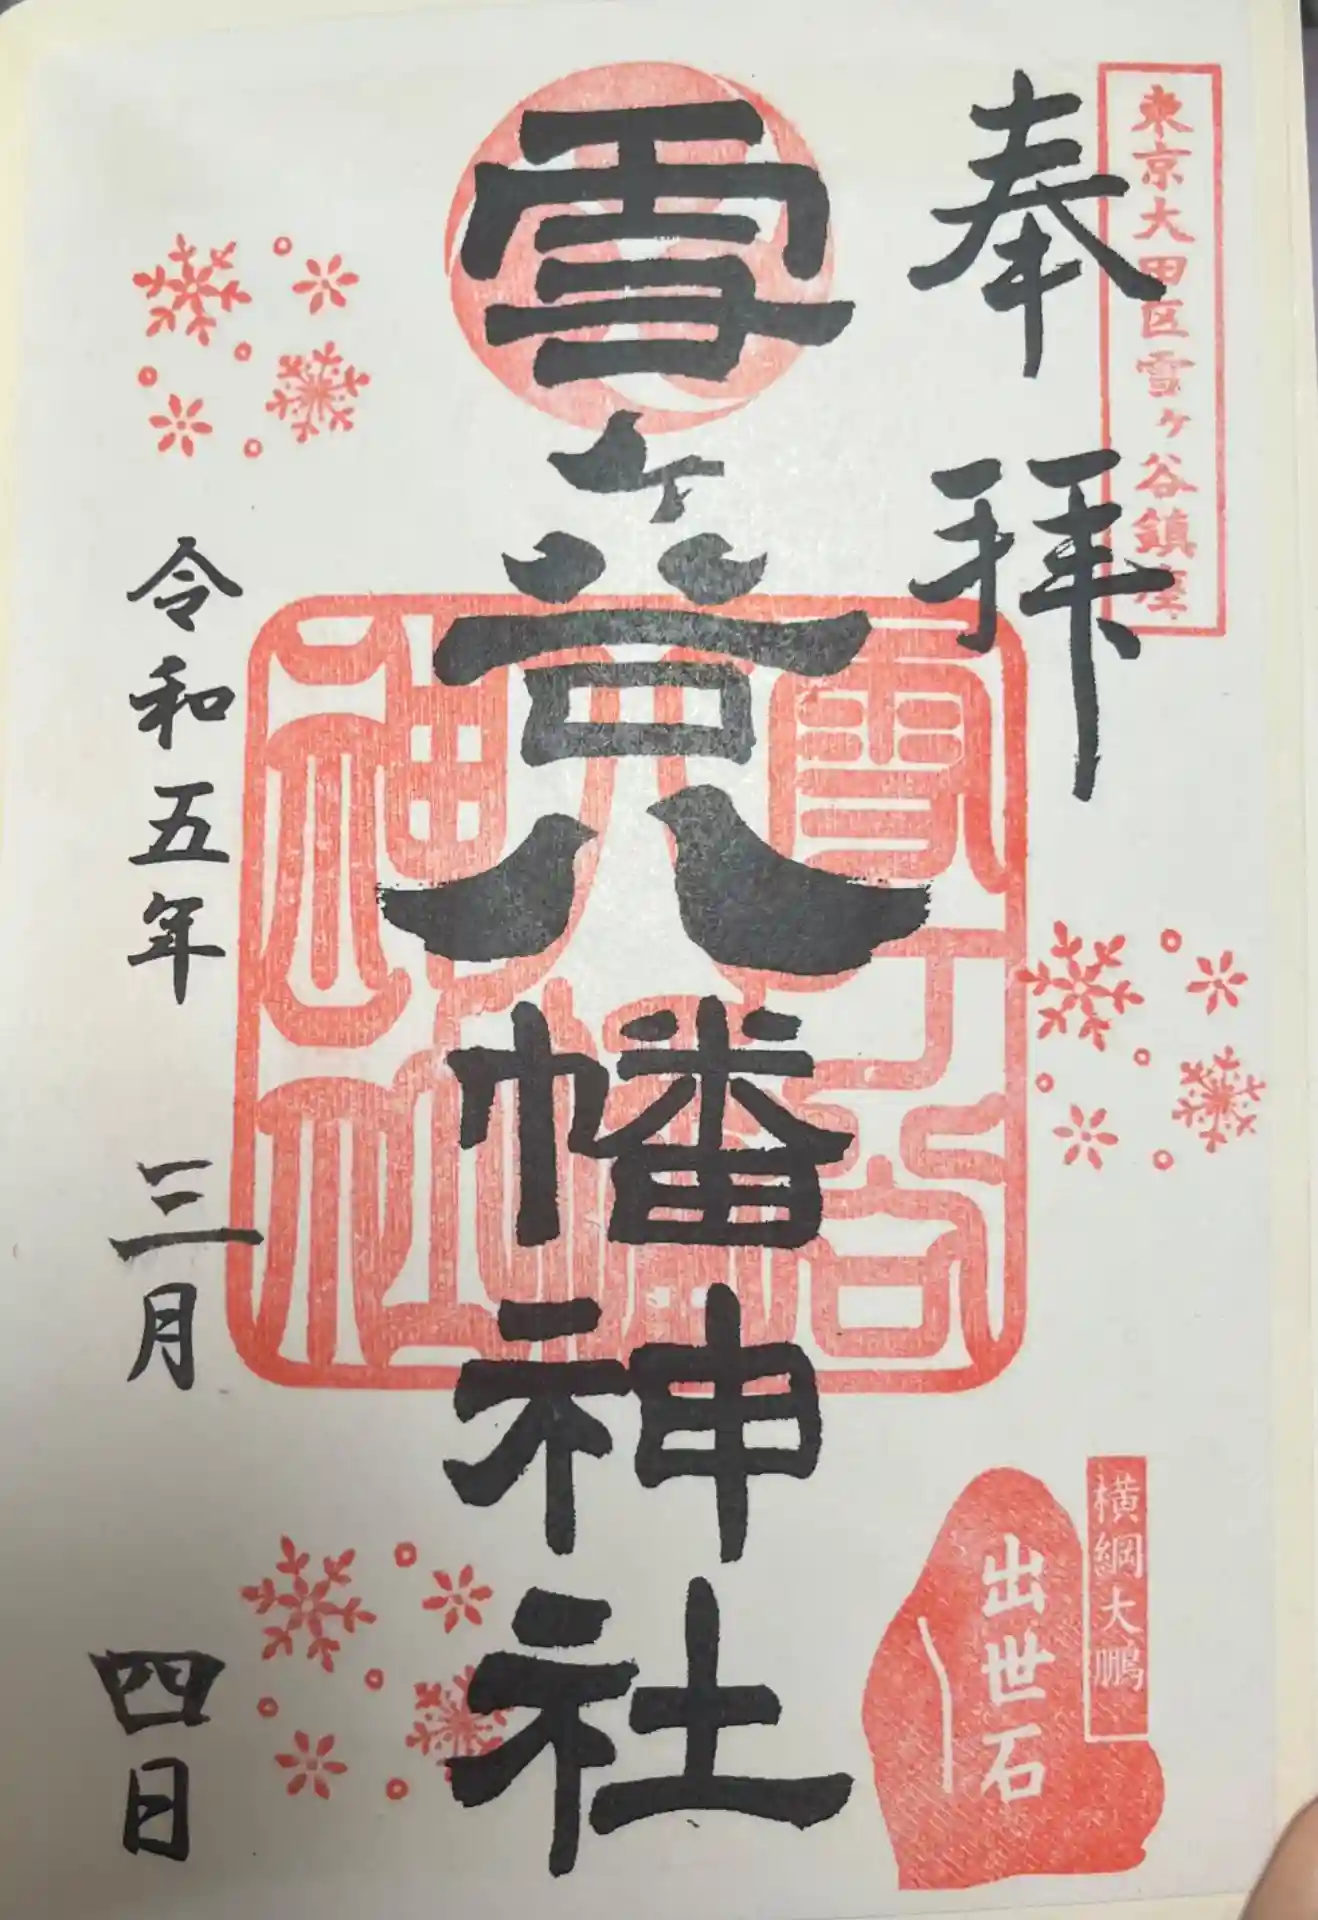 東京大田区雪ヶ谷鎮座
奉拝
横綱大鵬
出世石
雪ヶ谷八幡神社
雪ヶ谷
八幡
神社
令和五年三月四日